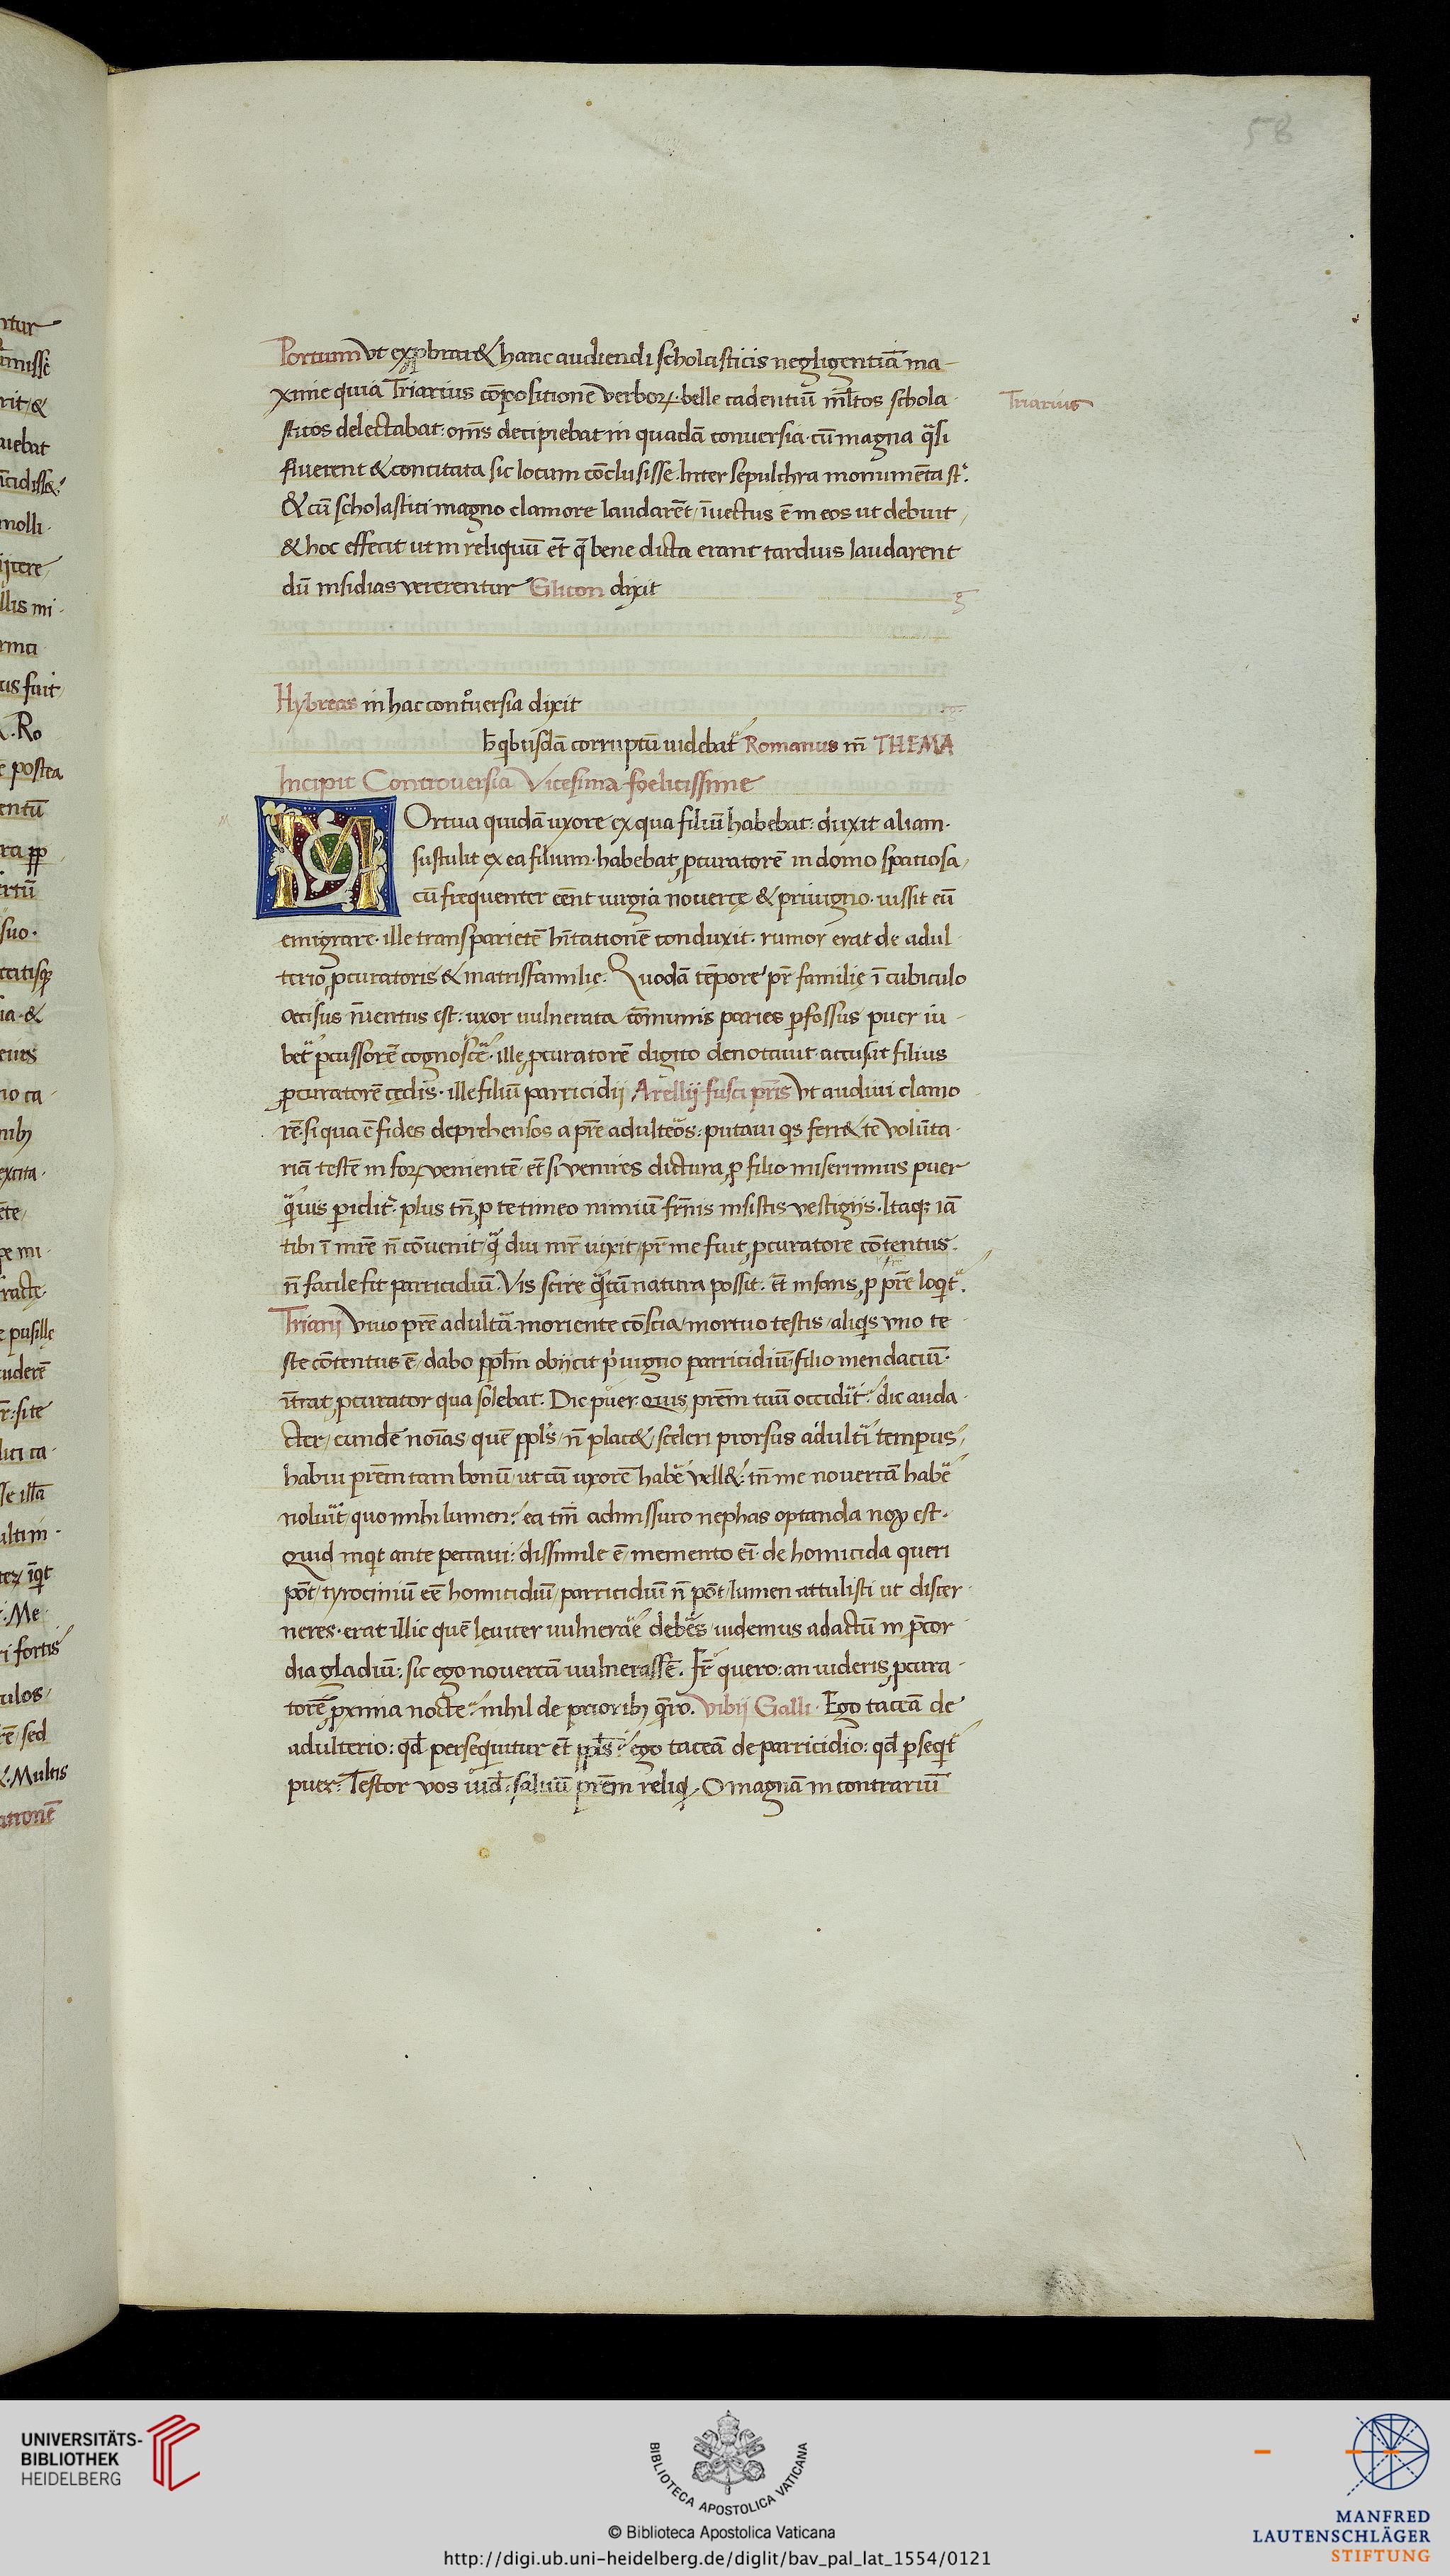 58
Portium vt exprobraret & hanc audiendi scholasticis negligentiā ma-
xime quia Triarius cōpositionē verboꝝ· belle cadentiū ml̄tos schola-
sticos delectabat: oēs decipiebat in quadā conuersia· cū magna q̄si
fluerent & concitata sic locum cōclusisse· Inter sepulchra monumēta st̄·
& cū scholastici magno clamore laudarēt, īuectus ē in eos ut debuit,
& hoc effecit ut in reliquū et̄ q̄ bene dicta erant tardius laudarent
dū insidias vererentur Glicon dixit
Triarius
Hybreas in hac contouersia dixit
corruptū uidebat᷑ Romanus THEMA
Incipit Controuersia Vicesima foelicissime
M Ortua quidā uxore ex qua filiū habebat: duxit aliam·
sustulit ex ea filium· habebat ꝓcuratorē in domo spatiosa,
cū frequenter eēnt iurgia nouercę & priuigno· iussit eū
emigrare· ille trans parietē hītationē conduxit· rumor erat de adul-
terio ꝓcuratoris & matrisfamilię· Quodā tēpore pr̄ familię ī cubiculo
occisus īuentus est: uxor uulnerata cōmunis paries ꝑfossus puer iu-
bet᷑ ꝑcussorē cognosce᷑· ille ꝓcuratorē digito denotauit· accusat filius
ꝓcuratorē cędis· ille filiū parricidij Arellij fusci pr̄is Vt audiui clamo-
rē si qua ē fides deprehensos a pr̄e adulte᷑os: putaui q̄s ferr& te volūta-
riā testē in foꝝ venientē· et̄ si venires dictura ꝓ filio miserrimus puer
q̄uis ꝑidit᷑· plus tn̄ ꝓ te timeo nimiū fr̄nis insistis vestigijs· Itaqꝫ iā
tibi ī mr̄e n̄ cōuenit, q̄ diu mr̄ uixit, pr̄ me fuit ꝓcuratore cōtentus·
n̄ facile fit parricidiū· Vis scire q̄tū natura possit· et̄ infans ꝓ pr̄e loqit᷑·
Triarij Viuo pr̄e adulta᷑· moriente cōscia, mortuo testis, aliqis vno te-
ste cōtentus ē, dabo ppl̄m obijcit pͥuigno parricidiū, filio mendaciū·
ītrat ꝓcurator qua solebat· Dic puer· Quis pr̄em tuū occidit᷑· dic auda-
cter, eundē noīas quē ppl̄s, n̄ plac& sceleri prorsus adulti᷑ tempus,
habui pr̄em tam bonū, ut cū uxorē habe᷑ vell&: tn̄ me nouercā habe᷑
noluit᷑, quo mihi lumen: ea tm̄ admissuro nephas optanda nox est·
Quid inqit ante peccaui: dissimile ē, memento eī· de homicida queri
pōt, tyrociniū eē homicidiū, parricidiū n̄ pōt, lumen attulisti ut discer-
neres· erat illic quē leuiter uulnera᷑e debe᷑s, uidemus adactū in p̄cor-
dia gladiū: sic ego nouercā uulnerassē· Fr̄ quero: an uideris ꝓcura-
torē ꝓxima nocte· nihil de priorib; q̄ro· Vibij Galli· Ego taceā de
adulterio: qd̄ persequitur et̄ ppl̄s· ego taceā de parricidio: qd̄ ꝑseqit᷑
puer· Testor vos iud̄· saluū pr̄em reliq· O magnā in contrariū
UNIVERSITÄTS-
BIBLIOTHEK
HEIDELBERG
BIBLIOTECA APOSTOLICA VATICANA
© Biblioteca Apostolica Vaticana
MANFRED
LAUTENSCHLÄGER
STIFTUNG
http://digi.ub.uni-heidelberg.de/diglit/bav_pal_lat_1554/0121